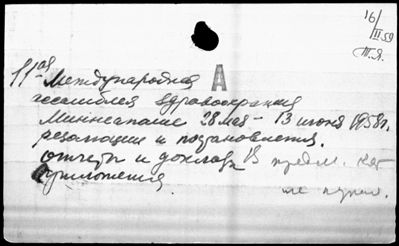 16/
III 59
Т.Я.
А
11ая Международная
ассамблея здравоохранения
Миннеаполис 28 мая - 13 июня 1958г.
резолюции и постановления.
отчеты и доклады В предм. кат
приложения не нужен.